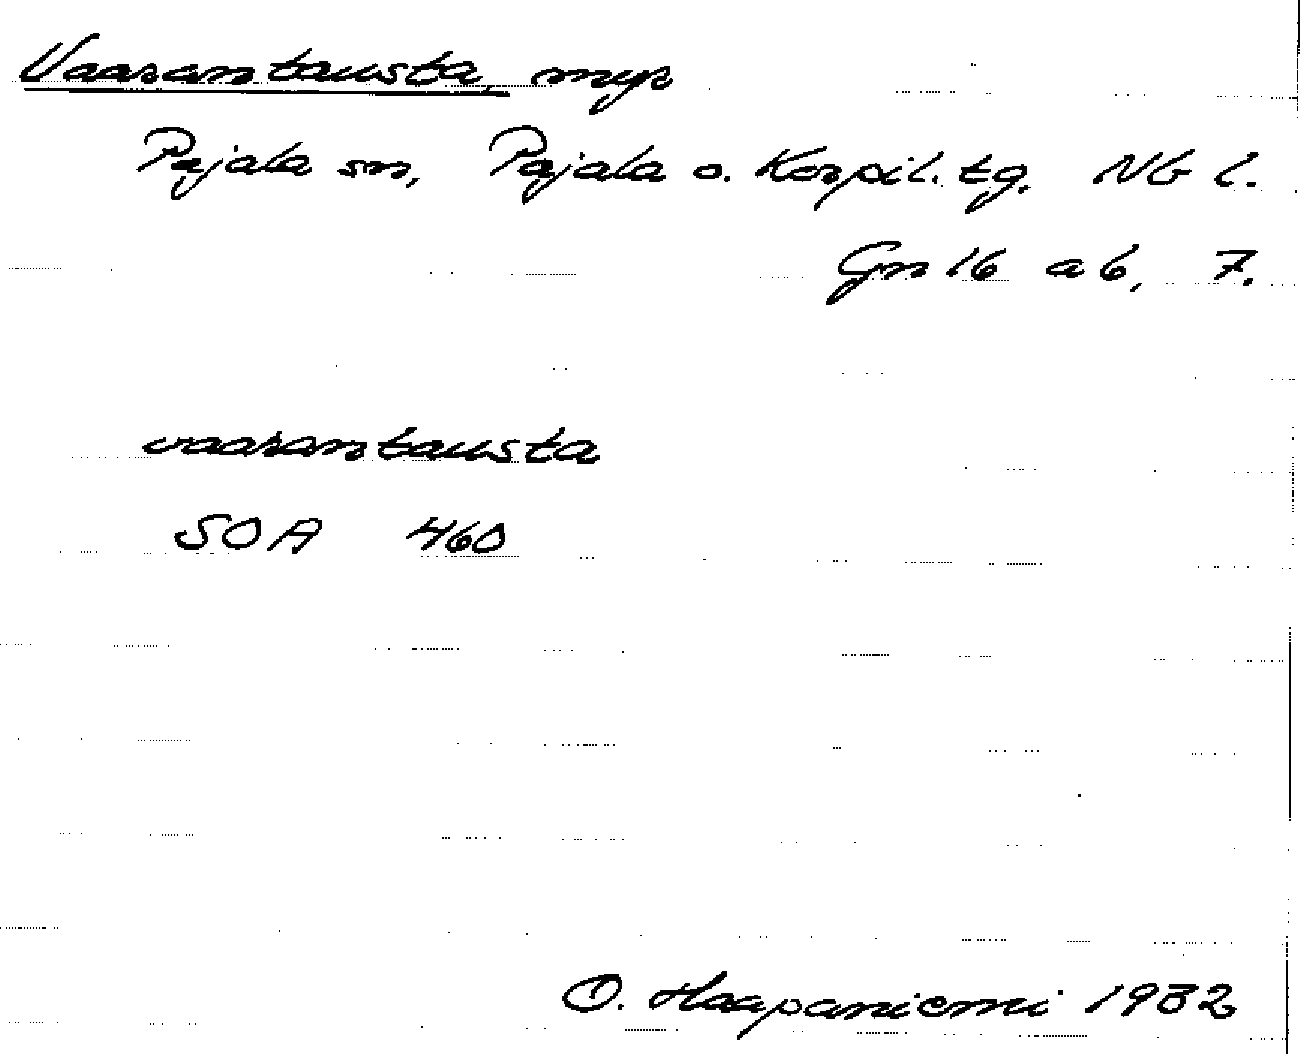 Vaarantausta, myr
Pajala sn, Pajala o. Korpil. tg. Nb l.
Gn 16 ab, 7.
vaarantausta
SOA 460
O. Haapaniemi 1932